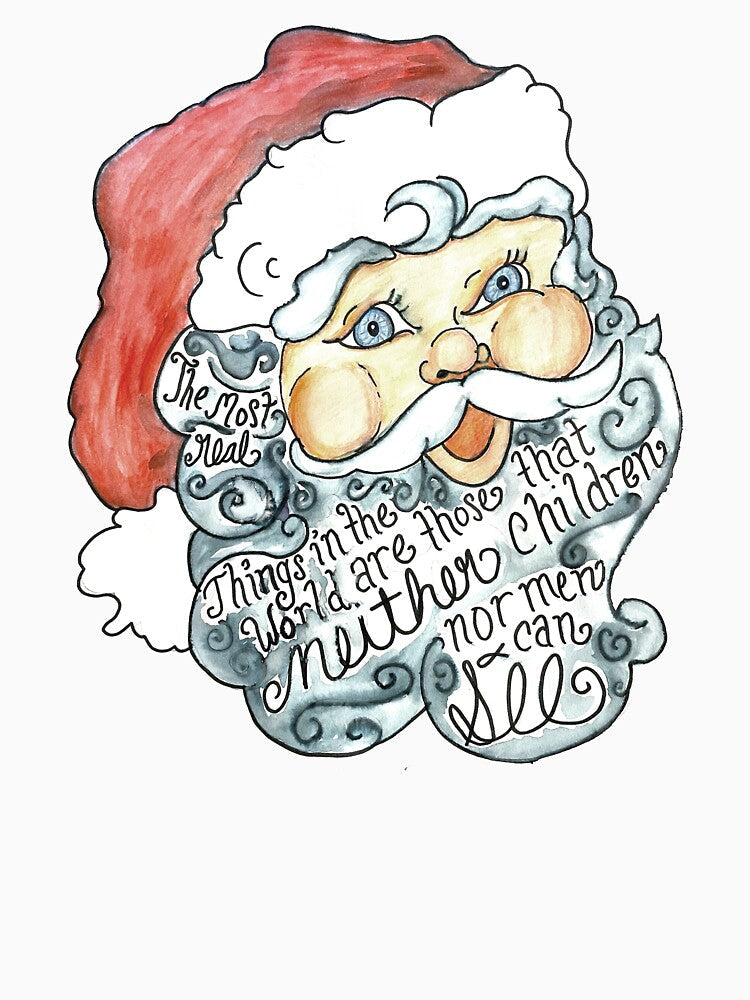 The Most
real
Things in the
World are those that
neither children
nor men
can
See